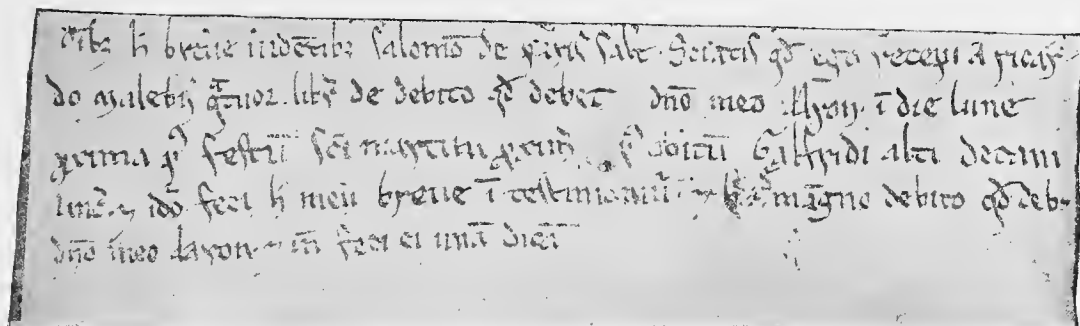 Oībȝ h̄ breue uidētibȝ Salomō de paris̄ Sal't. Sciatis qđ ego recepi a Ricar-
do Maleb' qᵃtuor. libr̄ de debito qđ debet dño meo Aaron. ī die lune
prima pᵗ festū sc̄i martini pᵗ obitū Galfridi alti decani
idō feci h̄ meū breue ī testimoniū magno debito qđ deb
dño meo Aaron feci ei unā